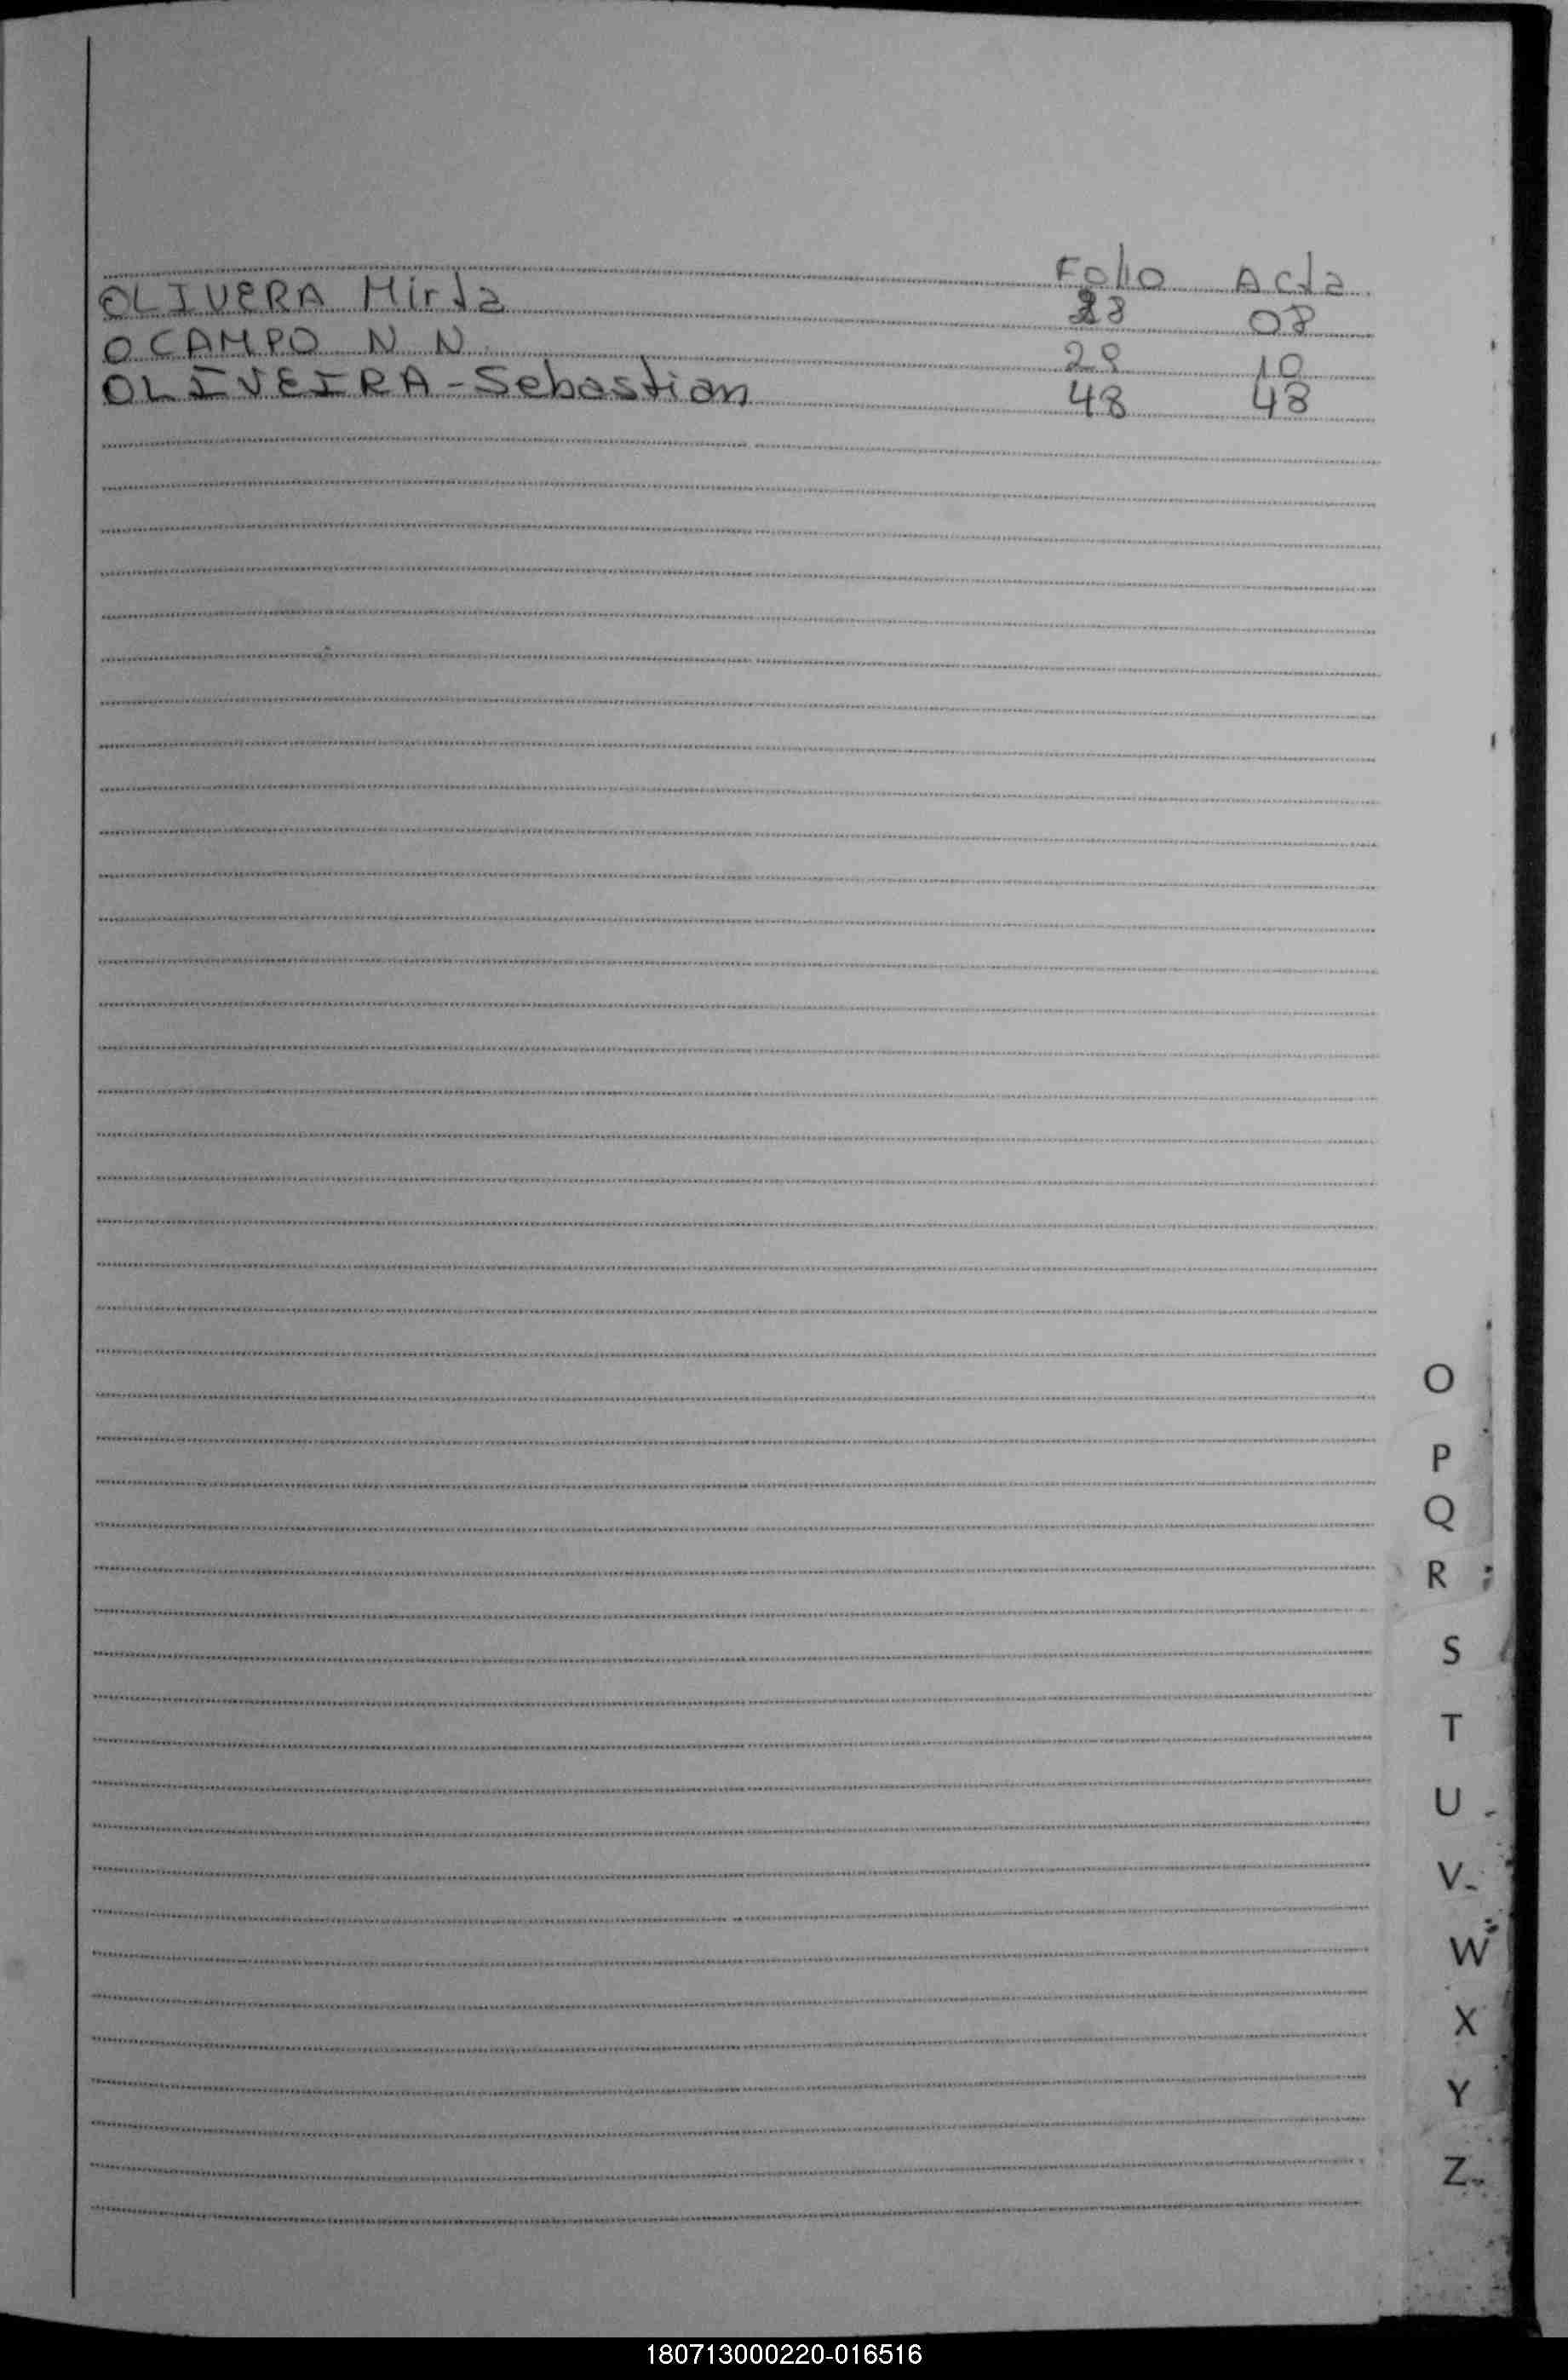 Folio Acta
OLIVERA Mirta 28 08
OCAMPO N N. 29 10
OLIVEIRA-Sebastian 48 48
O
P
Q
R
S
T
U
V
W
X
Y
Z
180713000220-016516